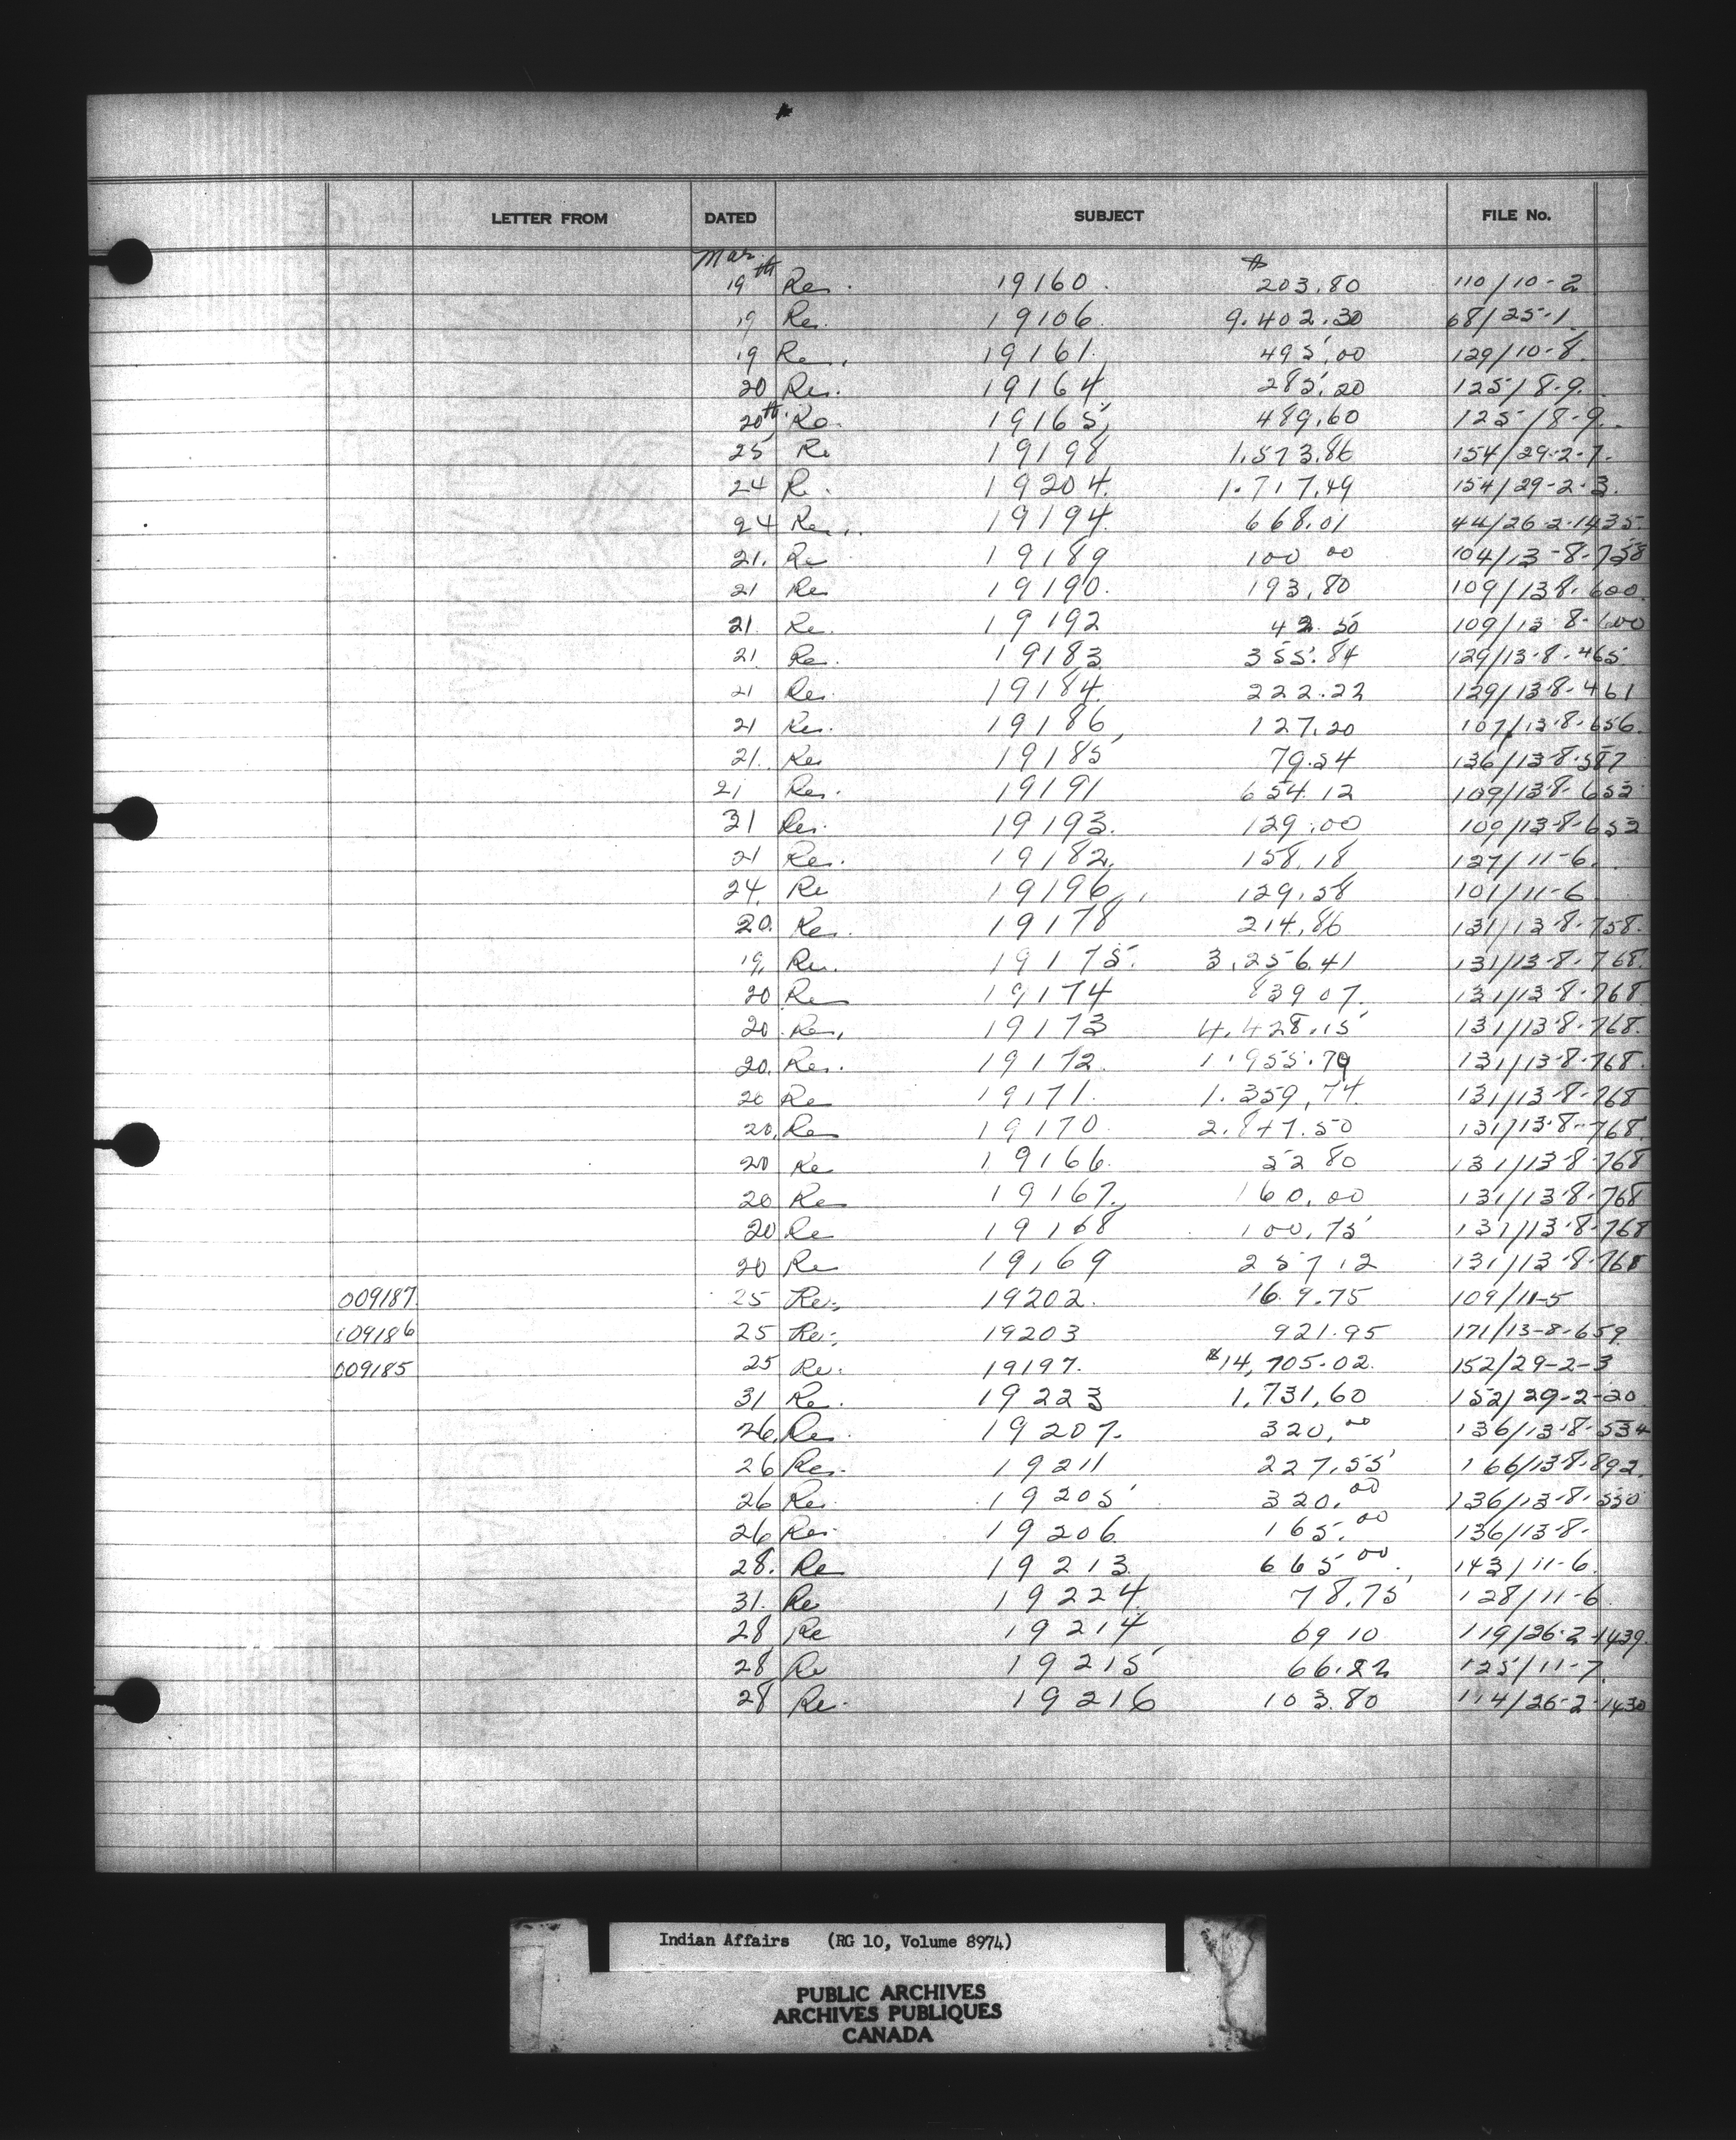 LETTER FROM DATED SUBJECT FILE No.
Mar.
19th Re. 19160. $203.80 110/10-2
19 Re. 19106. 9.402.30 68/25-1.
19 Re. 19161. 495.00 129/10-8.
20 Re. 19164 285.20 125/8-9.
20th Re. 19165, 489.60 125/8-9.
25 Re 19198 1.573.86 154/29-2-7.
24 Re. 19204. 1.717.49 154/29-2-3.
24 Re. 19194. 668.01 44/26-2-1435.
21. Re 19189 100 00 104/13-8-758
21 Re 19190. 193.80 109/13-8-600.
21. Re. 19192 42.50 109/13-8-600
21. Re. 19183 355.84 129/13-8-465.
21 Re. 19184 222.22 129/13-8-461
21 Re. 19186, 127.20 107/13-8-656.
21. Re 19185 79.54 136/13-8-587
21 Re. 19191 654.12 109/13-8-653
21 Re. 19193. 129.00 109/13-8-653
21 Re. 19182, 158.18 127/11-6.
24. Re 19196, 129.58 101/11-6
20. Re. 19178 214.86 131/13-8-758.
19, Re. 19175. 3,256.41 131/13-8-768.
20 Re 19174 839 07. 131/13-8-768
20. Re. 19173 4.428.15 131/13-8-768.
20. Re. 19172. 1.955.79 131/13-8-768.
20 Re 19171. 1.359.74 131/13-8-768
20. Re 19170. 2.847.50 131/13-8-768.
20 Re 19166. 52 80 131/13-8-768
20 Re 19167. 160.00 131/13-8-768
20 Re 19168 100.75 131/13-8-768
20 Re 19169 257.12 131/13-8-768
009187 25 Re: 19202. 169.75 109/11-5
009186 25 Re: 19203 921.95 171/13-8-659.
009185 25 Re: 19197. $14,705.02. 152/29-2-3
31 Re. 19223 1,731.60 152/29-2-20.
26. Re. 19207. 320.00 136/13-8-534
26 Re. 19211 227.55 166/13-8-892.
26 Re. 19205 320.00 136/13-8-550
26 Re. 19206 165.00 136/13-8-
28. Re 19213 665.00. 143/11-6.
31. Re 19224. 78.75 128/11-6.
28. Re 19214 69 10 119/26-2-1439.
28. Re 19215 66.22 125/11-7
28 Re. 19216 103.80 114/26-2-1430
Indian Affairs (RG 10, Volume 8974)
PUBLIC ARCHIVES
ARCHIVES PUBLIQUES
CANADA